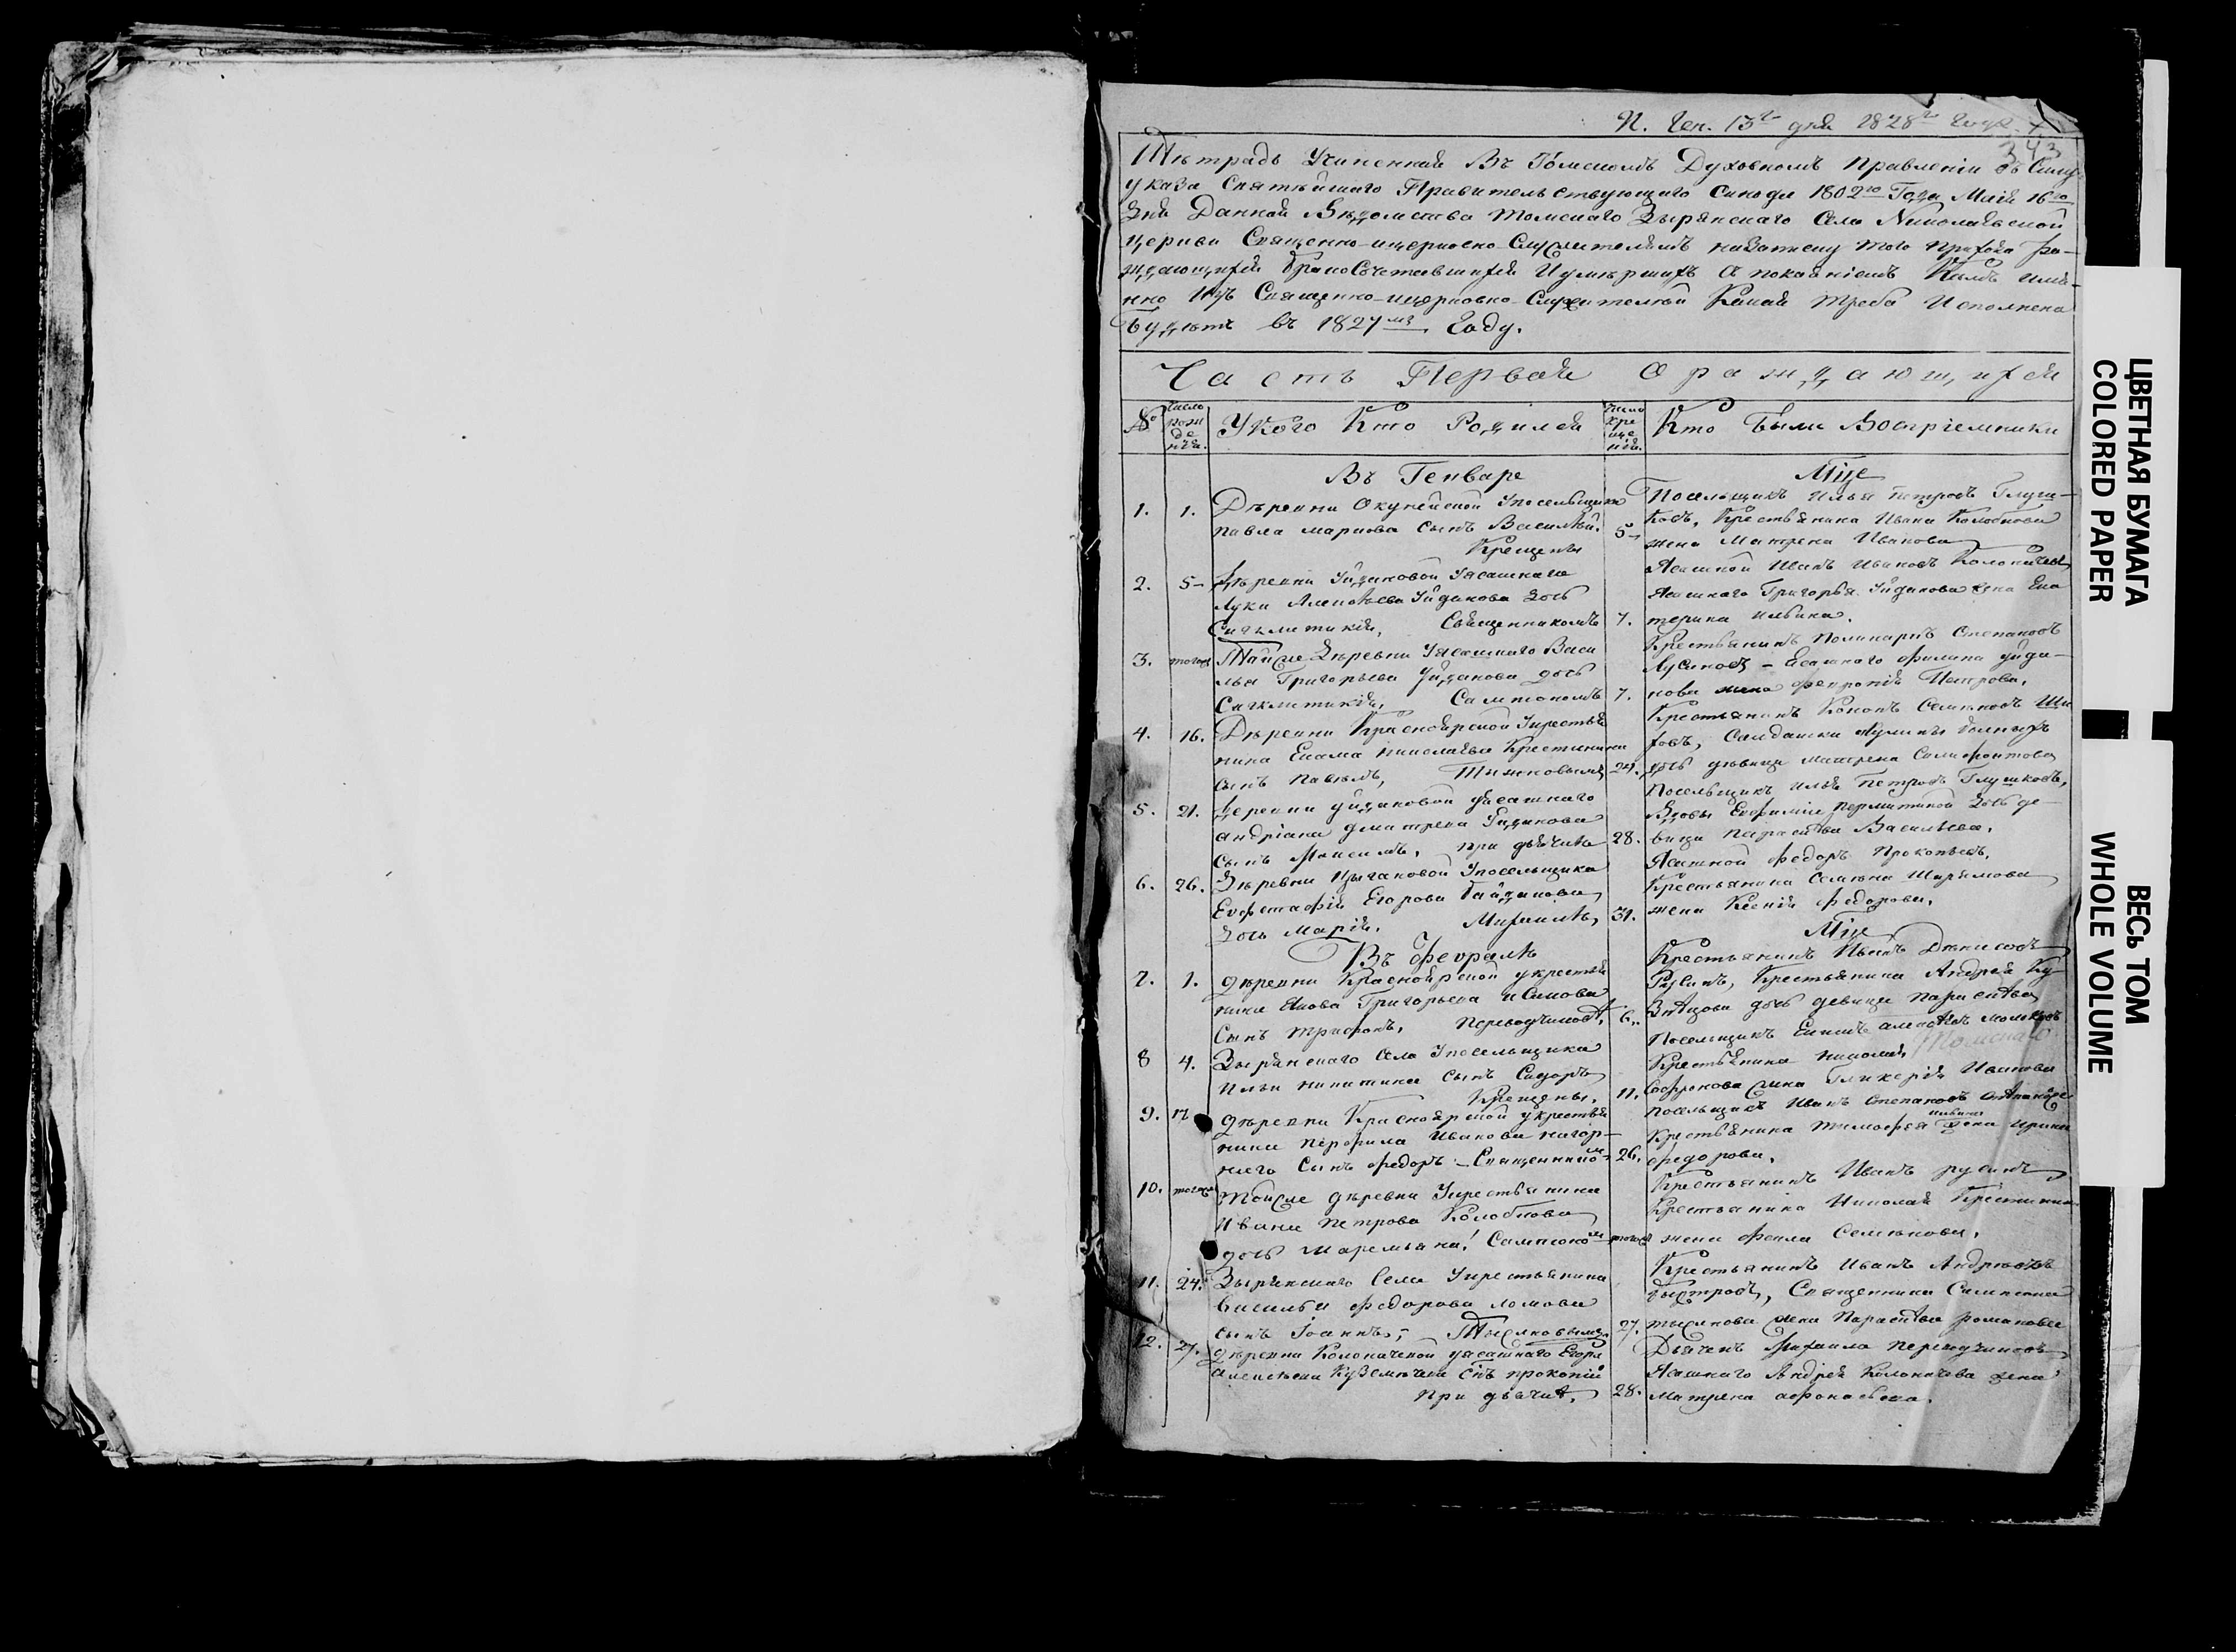 П. Ген. 13го дня 1828го Года
343
Тетрадь Учиненная Въ Томскомъ Духовномъ Правлении въ Силу
указа Святѣйшаго Правительствующаго Синода 1802го Года Маія 16го
Дня Данная Вѣдомства Томскаго Зырянскаго Села Николаевской
церкви Священно-ицерковно-Служителямъ назаписку того прихода Ра-
ждающихся бракоСочетавшихся Иумершихъ Съ покаяніемъ Кѣмъ имя-
нно Изъ Священно-ицерковно-Служителей Какая треба Исполнена
будетъ въ 1827мъ Году.
Часть Первая О раждающихся
№
число рож де нія.
Укого Кто Родился
число кре ще нія.
Кто Были Воспріемники
Въ Генварѣ
Мце
1. 1. Деревни Окунеевой Упосельщика
павла маркова сынъ Василій.
Крещены
5
Посельщикъ Илья Петровъ Глуш-
ковъ, Крестьянина Ивана Колобкова
жена Матрена Иванова
2. 5 Деревни Уйдановой Уясашнаго
Луки Алексѣева Уйданова дочь
Сигклитикія, Священникомъ
7.
Ясашной Иванъ Ивановъ
Ясашнаго Григорья Уйданова жена Ека-
терина Ильина.
3. тогожъ Тойже Деревни Уясашнаго Васи
лья Григорьева Уйданова дочь
Сигклитикія, Сампсономъ
7.
Крестьянинъ Поликарпъ Степановъ
Ясашнаго Филипа уйда-
нова жена Февронія Петрова.
4. 16. Деревни Красноярской Укрестья
нина Николаева Крестинина
Сынъ Павелъ, Тыжновымъ
24.
Крестьянинъ Кононъ Семеновъ
дочь дѣвица матрена
5. 21. Деревни уйдановой уясашнаго
андріана дмитрева Уйданова
Сынъ Максимъ, при дьячкѣ
28.
Посельщикъ Илья Петровъ Глушковъ,
Вдовы Евфиміи дочь де-
вица параскева Васильева.
6. 26. Деревни Цыгановой Упосельщика
Евстафія Егорова Гайданова
дочь Марія. Михаилѣ,
31.
Ясашной Федоръ Прокопьевъ,
Крестьянина Семена
жена Ксенія Федорова.
Въ Февралѣ
Мце
7. 1. деревни Красноярской укрестья
нина Якова Григорьева
Сынъ трифонъ, Переводчиковѣ,
6.
Крестьянинъ Иванъ Денисовъ
Русинъ, Крестьянина Андрея Ку-
знѣцова дочь девица параскева
8 4. Зырянскаго Села Упосельщика
Ильи никитина Сынъ Сидоръ
Крещены,
11.
Посельщикъ
Крестьянина николая
Софронова жена Гликерія Иванова
9. 17 деревни Красноярской укрестья
нина перфила Иванова нагор-
наго Сынъ Федоръ - Священником
26.
Посельщикъ Иванъ Степановъ
Крестьянина тимофея жена Ирина
Федорова.
10. тогожъ тойже деревни Укрестьянина
Ивана петрова Колобкова
дочь маремьяна! Сампсоном
тогожъ
Крестьянинъ Иванъ русинъ
Крестьянина Николая Крестинина
жена фекла Семенова.
11. 24. Зырянскаго Села Укрестьянина
Василья Федорова ломова
сынъ Іоаннъ, Тыжновымъ
27.
Крестьянинъ Иванъ Андреевъ
Быстровъ, Священника Сампсона
тыжнова жена Параскева романова
12. 27. деревни уясашнаго Егора
алексѣева Сынъ прокопій
при дьячкѣ,
28.
Дьячекъ Михаила Переводчиковъ
Ясашнаго Андрея жена
Матрена афонасьева.
ЦВЕТНАЯ БУМАГА
COLORED PAPER
ВЕСЬ ТОМ
WHOLE VOLUME